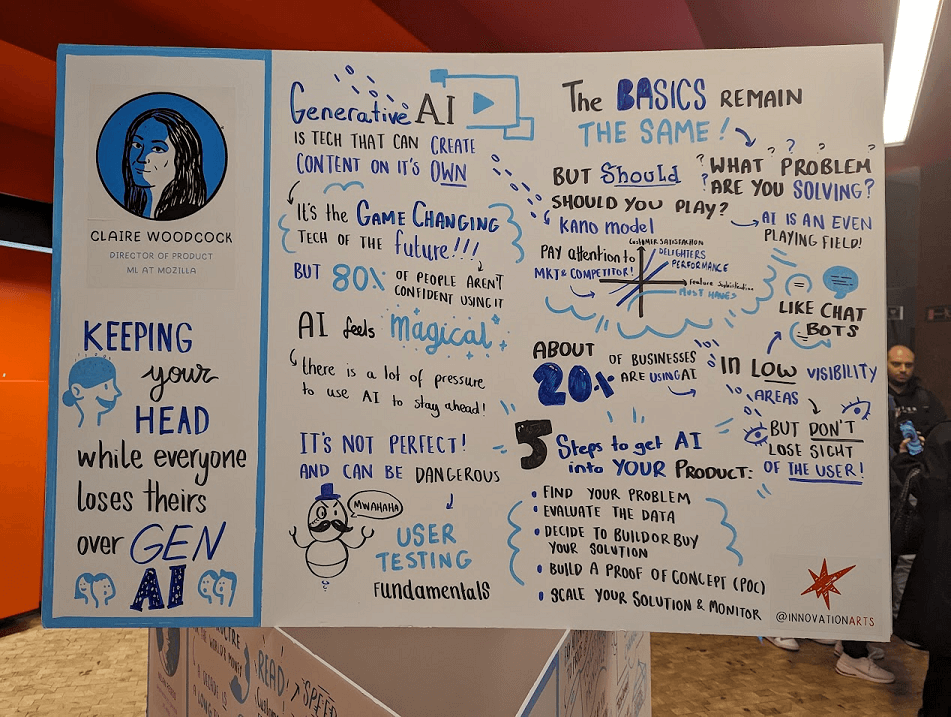 CLAIRE WOODCOCK
DIRECTOR OF PRODUCT
ML AT MOZILLA
KEEPING
your
HEAD
while everyone
loses theirs
over GEN
AI
Generative AI
IS TECH THAT CAN CREATE
CONTENT ON IT'S OWN
IT's the GAME CHANGING
TECH OF THE future!!!
BUT 80% OF PEOPLE AREN'T
CONFIDENT USING IT
AI feels magical
there is a lot of pressure
to use AI to stay ahead!
IT'S NOT PERFECT!
AND CAN BE DANGEROUS
MWAHAHA
USER
TESTING
FUNDAMENTALS
The BASICS REMAIN
THE SAME!
? ? ? ?
BUT Should
SHOULD YOU PLAY?
? WHAT PROBLEM
? ARE YOU SOLVING?
kano model
AI IS AN EVEN
PLAYING FIELD!
PAY attention to
MKT & COMPETITOR!
CUSTOMER SATISFACTION
DELIGHTERS
PERFORMANCE
MUST HAVES
LIKE CHAT
BOTS
ABOUT
20% OF BUSINESSES
ARE USING AI
IN LOW VISIBILITY
AREAS
BUT DON'T
LOSE SIGHT
OF THE USER!
5 Steps to get AI
into YOUR PRODUCT:
• FIND YOUR PROBLEM
• EVALUATE THE DATA
• DECIDE TO BUILD OR BUY
YOUR SOLUTION
• BUILD A PROOF OF CONCEPT (POC)
• SCALE YOUR SOLUTION & MONITOR
@INNOVATIONARTS
READ
SPEED